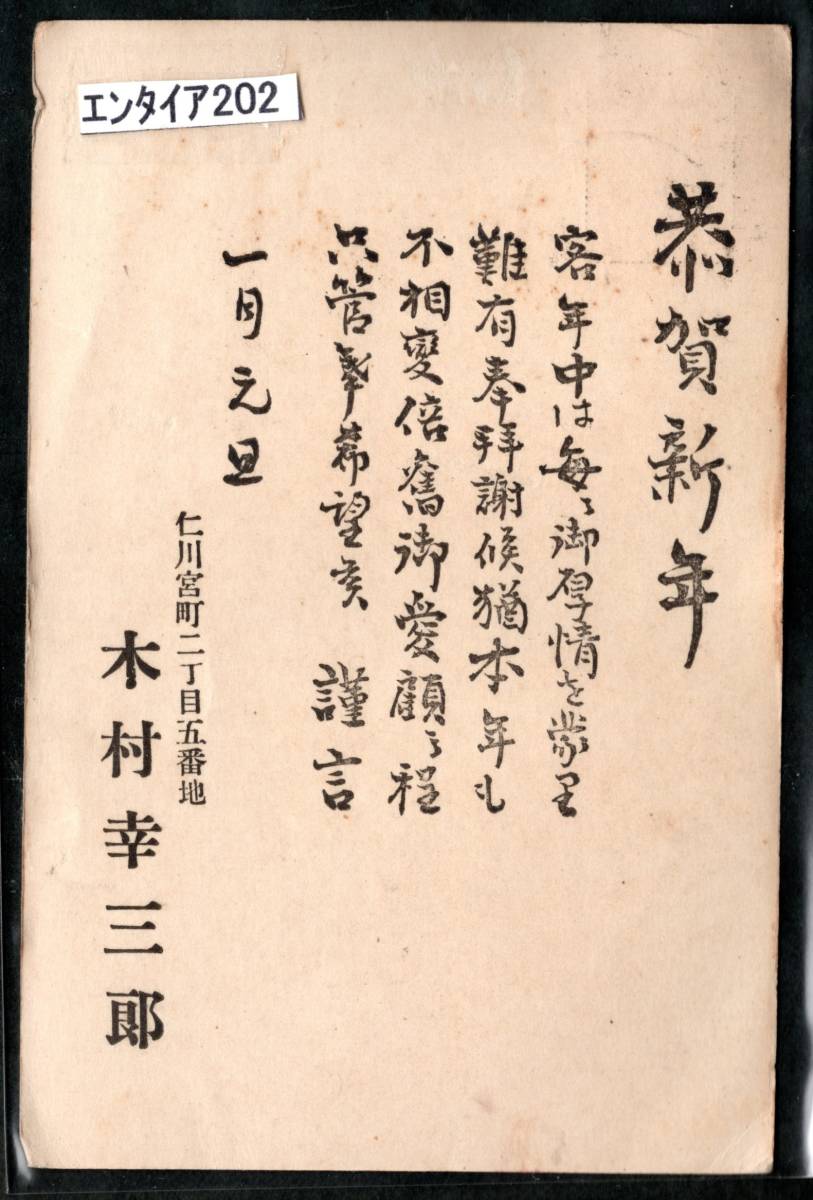 エンタイア202
恭賀新年
客年中は毎々御厚情を蒙り
難有奉拝謝候猶本年も
不相變倍舊御愛顧之程
只管奉希望候 謹言
一月元旦
仁川宮町二丁目五番地
木村幸三郎